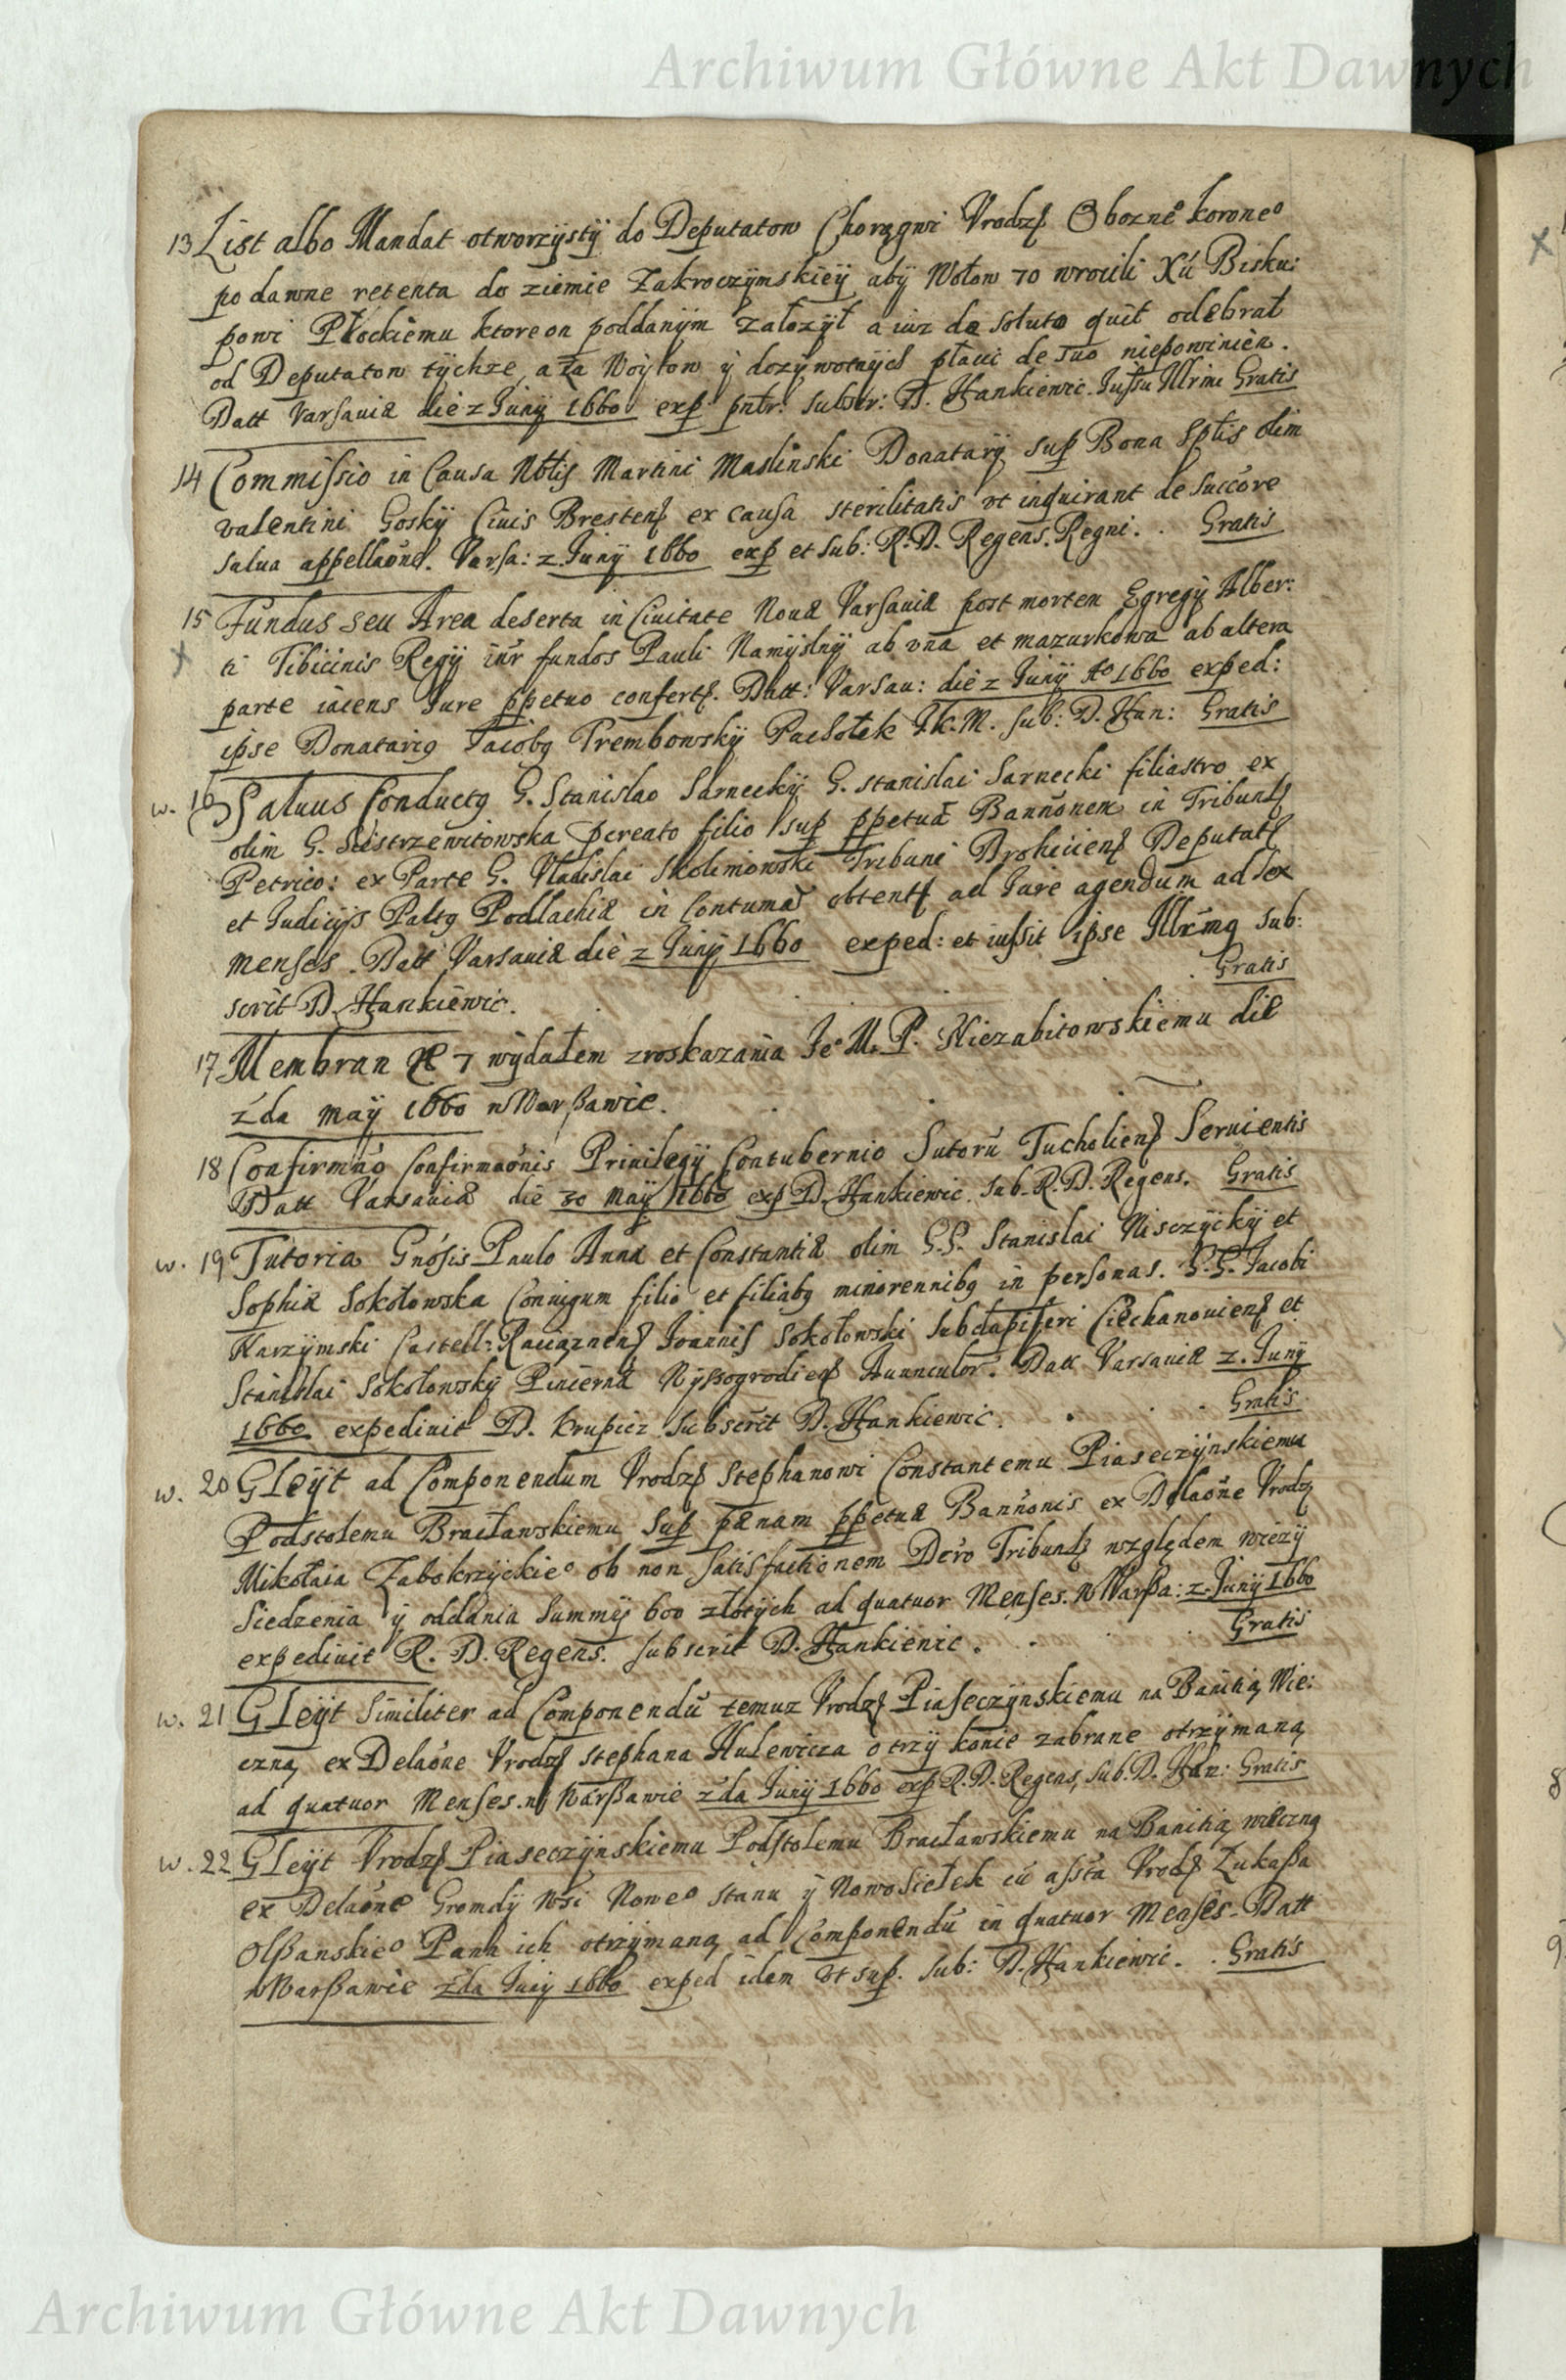 Archiwum Główne Akt Dawnych
13 List albo Mandat otworzysty do Deputatow Chorągwi Vrodz. Obozne korone°
po dawne retenta do ziemie Zakroczymskiey aby Wołow 70 wrocili Xu Bisku:
powi Płockiemu ktore on poddanym założył a iuz de soluto quit odebrał
od Deputatow tychze, a za Woytow y dozywotnych płacic de suo niepowinien.
Datt Varsaviæ die 2 Juny 1660 exp pntr: subscr: D. Hankiewic. Jussu Illrimi Gratis
14 Commissio in Causa Nblis Martini Maslinski Donatary sup Bona Sptis olim
valentini Gosky Ciuis Bresten ex causa sterilitatis vt inquirant de succore
salua appellaone. Varsa: 2. Juny 1660 exp et sub: R. D. Regens. Regni. . Gratis
15 Fundus seu Area deserta in Ciuitate Noua Varsauiæ post mortem Egregy Alber:
x ti Tibicinis Regy inr fundos Pauli Namyslny ab vna et mazurkowa ab altera
parte iacens Jure ppetuo confert. Datt: Varsau: die 2 Juny A° 1660 exped:
ipse Donatarig Jacobg Trembowsky Pacholek JK. M. sub: D. Han: Gratis
w. 16 Saluus Conductg G. Stanislao Sarnecky G. Stanislai Sarnecki filiastro ex
olim G. Scistrzewitowska pcreato filio sup ppetua Bannonem in Tribunt
Petrico: ex Parte G. Vladislai Skolimowski Tribuni Drohicien Deputat
et Judicys Paltg Podlachiæ in Contuma obtent ad Jure agendum ad sex
menses. Datt Varsauiæ die 2 Juny 1660 exped: et iussit ipse Illrmg sub:
scrit D. Hankiewic. . Gratis
17 Membran 7 wydałem zroskazania Je° M. P. Niezabitowskiemu die
2da may 1660 w Warszawie.
18 Confirmao Confirmaonis Priuilegy Contubernio Sutoru Tucholien Seruientis
Datt Varsauiæ die 30 May 1660 exp D. Hankiewic. sub. R. D. Regens. Gratis
w. 19 Tutoria Gnosis Paulo Annæ et Constantiæ olim G.G. Stanislai Nisczycky et
Sophiæ Sokołowska Coniugum filio et filiabg minorennibg in personas. G.G. Jacobi
Narzymski Castell: Raciaznen Joannis Sokołowski Subdapiferi Ciechanouien et
Stanislai Sokołowsky Pincernæ Wyszogrodien Auunculor. Datt Varsauiæ 2. Juny
1660 expediuit D. Krupicz subscrit D. Hankiewic. . . . Gratis
w. 20 Gleyt ad Componendum Vrodz Stephanowi Constantemu Piaseczynskiemu
Podstolemu Bracławskiemu sup pænam ppetuæ Bannonis ex Delaone Vrodz
Mikołaia Zabokrzyckie° ob non satisfactionem Decro Tribunt względem wiezy
siedzenia y oddania Summy 600 złotych ad quatuor Menses. W Warsza: 2. Juny 1660
expediuit R. D. Regens. subscrit D. Hankiewic. . . . Gratis
w. 21 Gleyt Similiter ad Componendu temuz Vrodz Piaseczynskiemu na Banitią Wie:
czną ex Delaone Vrodz Stephana Hulewicza o trzy konie zabrane otrzymaną
ad quatuor Menses. w Warszawie 2da Juny 1660 exp R. D. Regens, Sub. D. Han: Gratis
w. 22 Gleyt Vrodz Piaseczynskiemu Podstolemu Bracławskiemu na Banitią wieczną
ex Delaone Gromdy Wsi Nowe° Stanu y Nowosiełek cu assta Vrodz Łukasza
Olszanskie° Pana ich otrzymaną ad Componendu in quatuor Menses. Datt
w Warszawie 2da Juny 1660 exped idem vt sup. sub: D. Hankiewic. . Gratis
Archiwum Główne Akt Dawnych